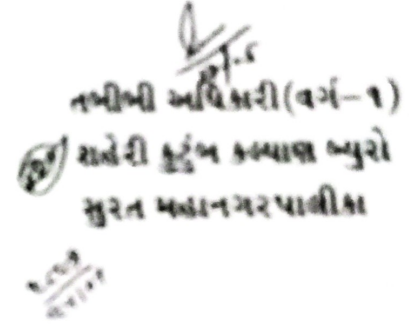 તબીબી અધિકારી(વર્ગ-૧)
શહેરી કુટુંબ કલ્યાણ બ્યુરો
સુરત મહાનગરપાલીકા